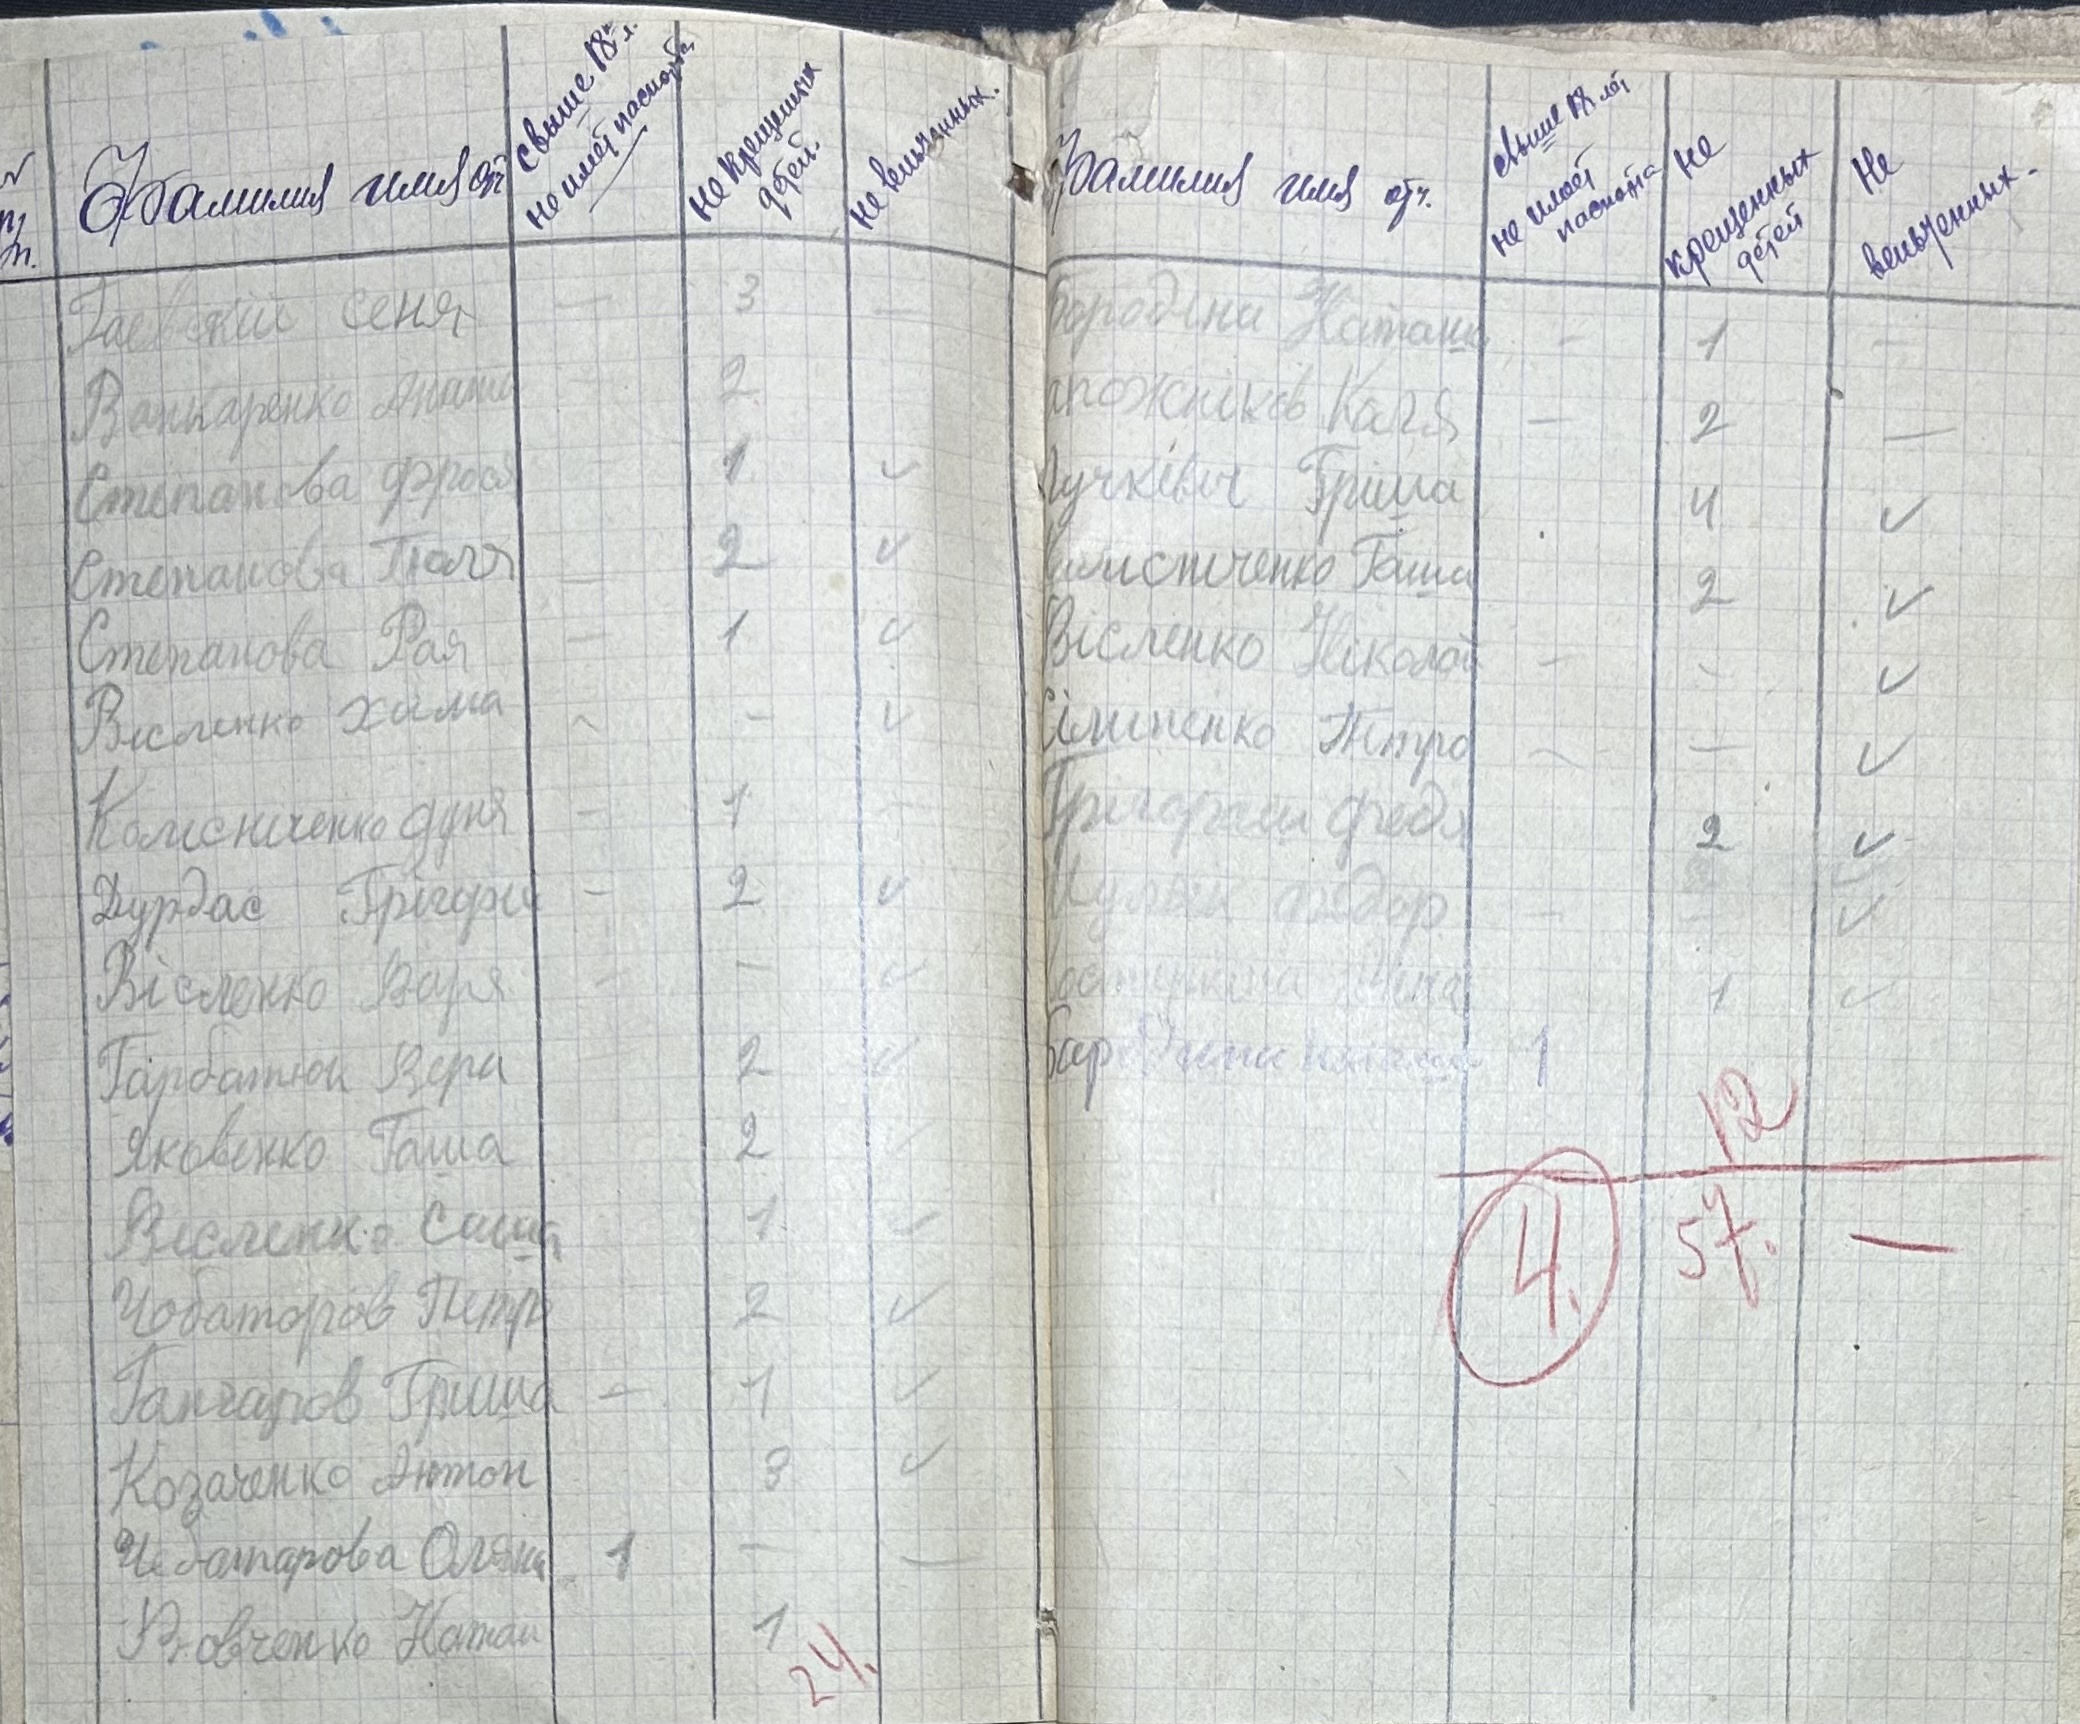 №
п/п.
Фамилия имя отч
свыше 18 л.
не имеет паспорта
не крещенных
детей.
не веньчанных.
Гаевский Сеня — 3 —
Ванжаренко — 2
Степанова Фрося 1 ✓
Степанова Поля — 2 ✓
Степанова Рая — 1 ✓
Вісленко Хима - - ✓
Колісніченко Дуня - 1 —
Дурдас Грігорій - 2 ✓
Вісленко Варя - - ✓
Гарбатюк Вера 2 ✓
Яковенко Гаша 2 ✓
Вісленко Саша 1 ✓
Чобаторов Петро 2 ✓
Ганчаров Гриша - 1 ✓
Козаченко Антон 3 ✓
Чебатарова Оляна 1 — —
Вдовченко Наташ 1
24.
Фамилия имя отч.
свыше 18 лет
не имеет
паспорта
не
крещенных
детей
не
веньченных.
Бородіна Наташа - 1 —
апожніков Каля — 2 —
Лучківіч Гріша 4 ✓
Гаша 2 ✓
Вісленко Ніколай - - ✓
Сіліненко Петро - — ✓
Грігораш Федя 2 ✓
Федор — - ✓
Ніна 1 ✓
Бародина Наташа 1
12
4. 57. —